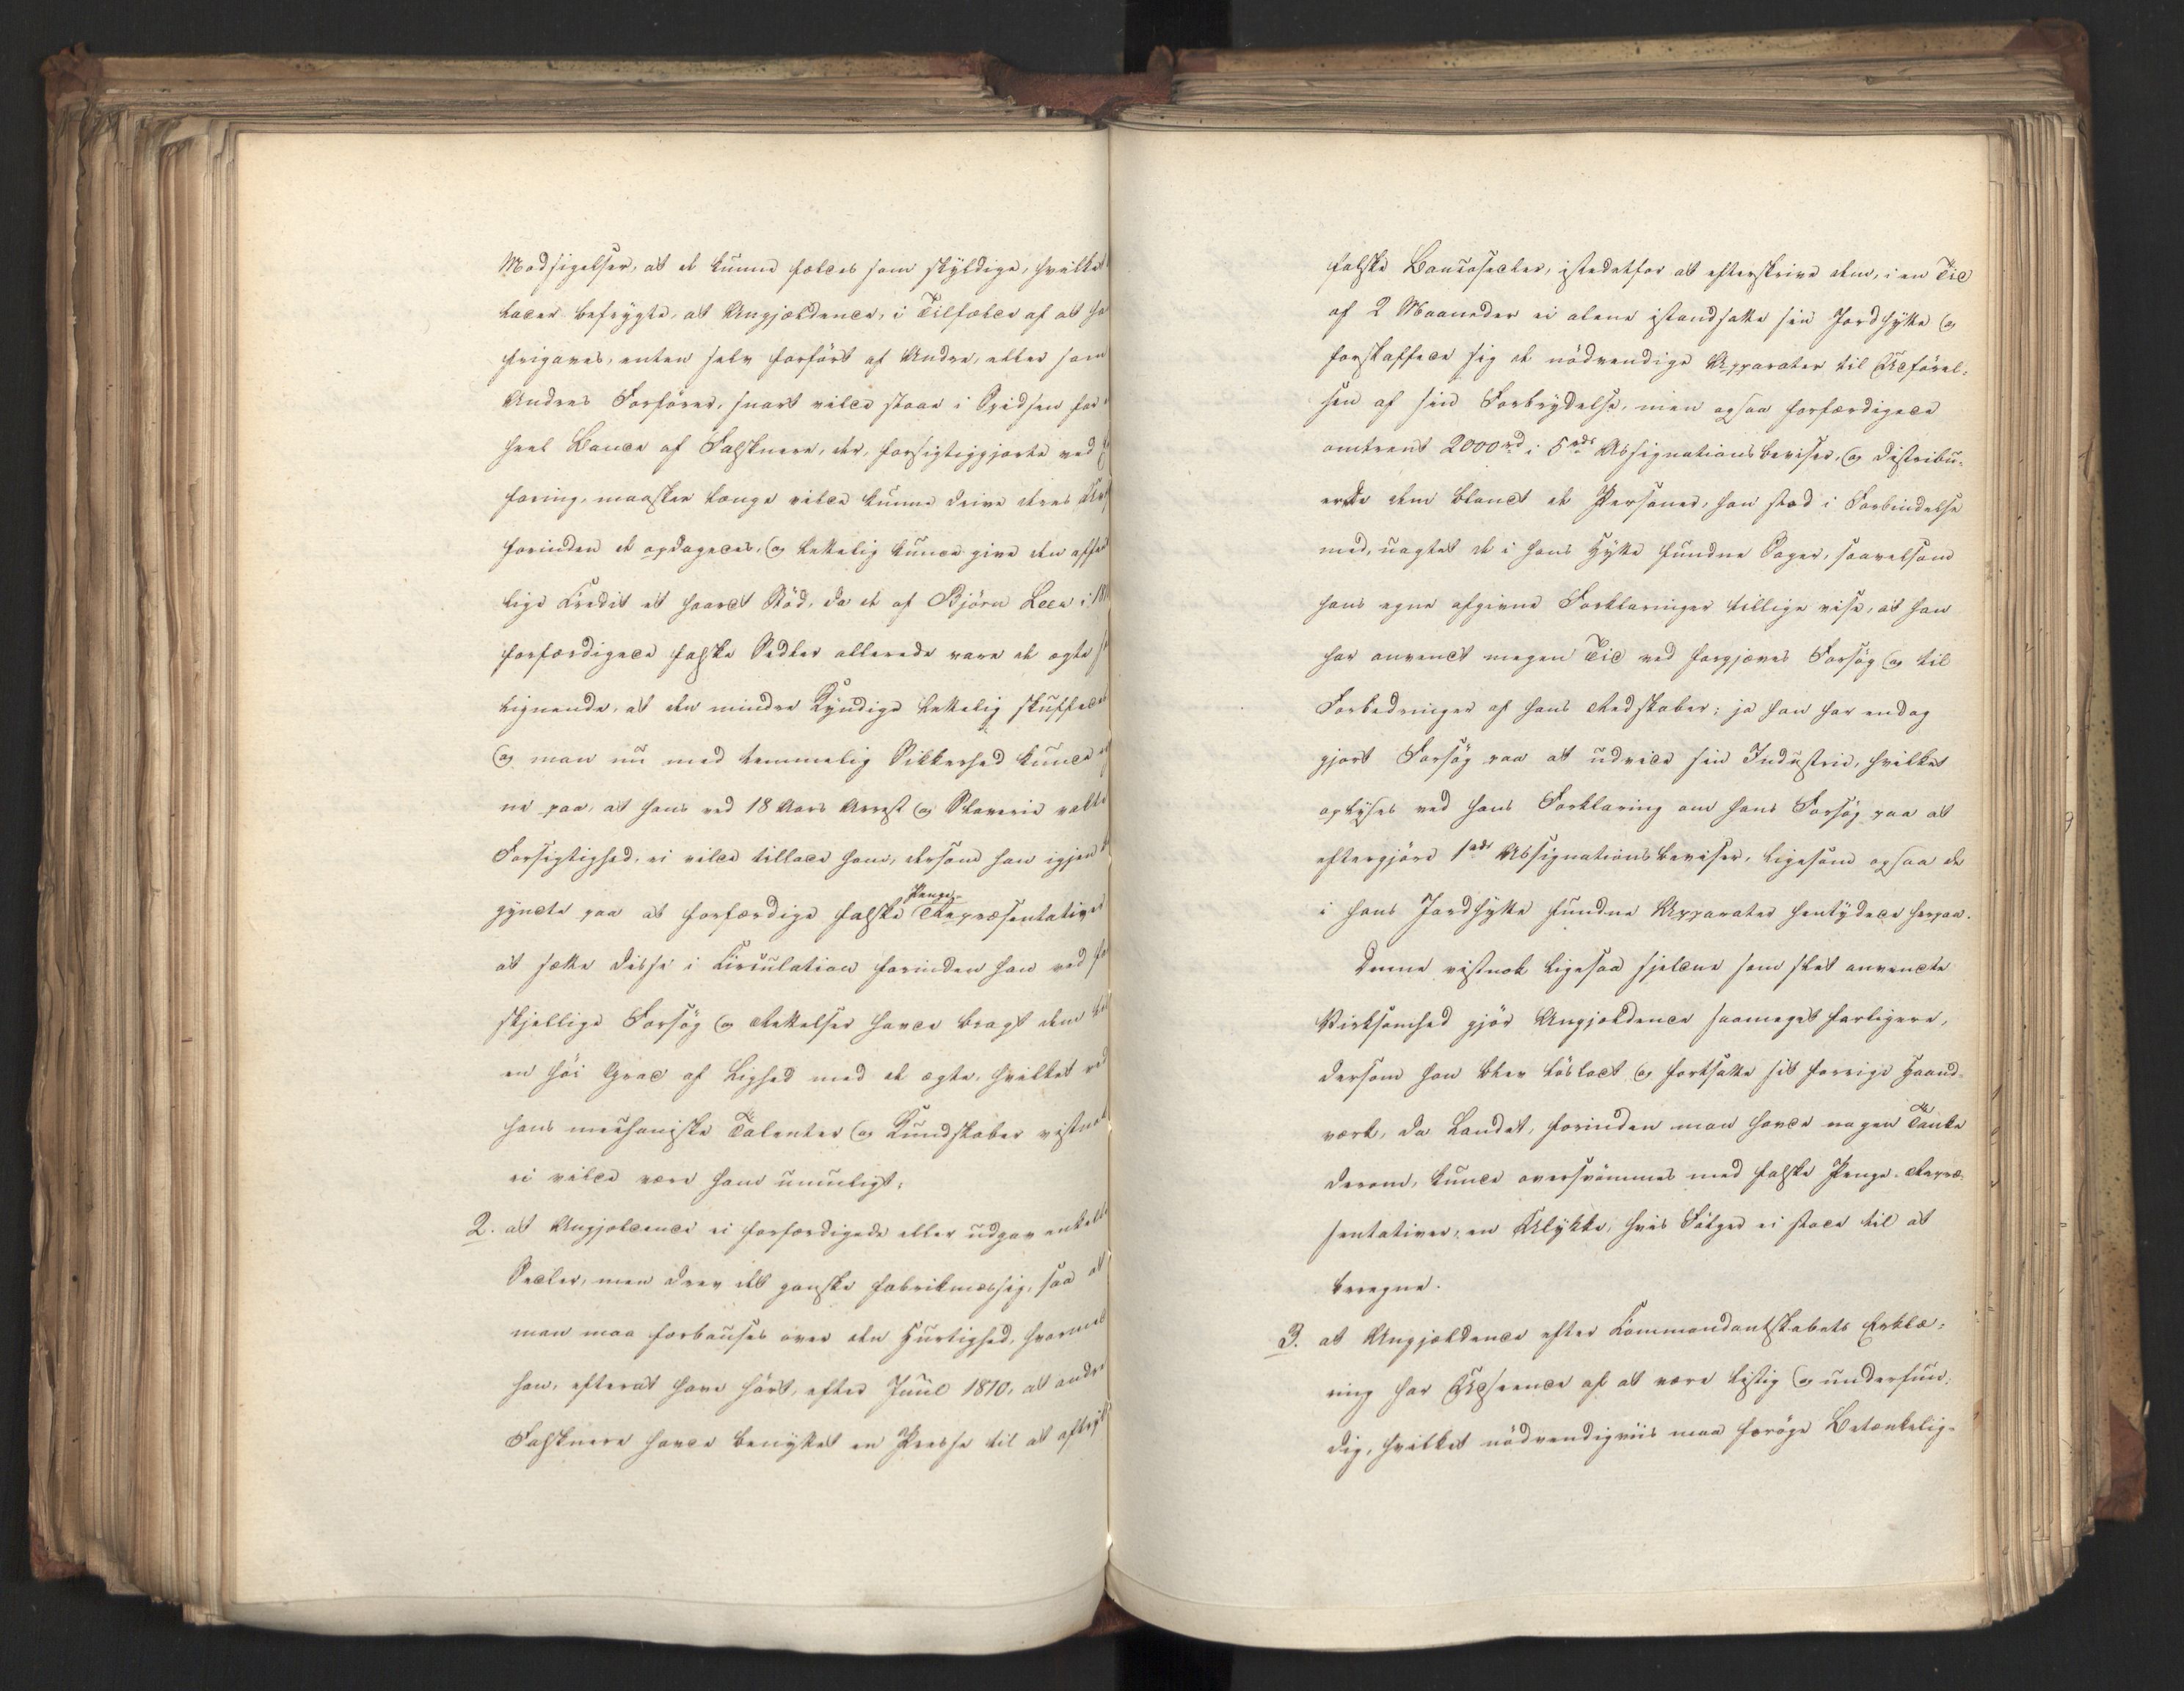 Modsigelser, at de kunne fældes som skyldige, hvilket
lader befrygte, at Angjældende, i Tilfælde af at han
frigaves, enten selv forført af Andre, eller som
Andres Forfører, snart vilde staae i Spidsen for
heel Bande af Falsknere, der, forsigtiggjorte ved
faring, maaskee længe vilde kunne drive deres
forinden de opdagedes, og lettelig kunde give den offent
lige Credit et haardt Stød, da de af Bjørn Lee i 18
forfærdigede falske Sedler allerede vare de ægte
lignende, at den mindre Kyndige lettelig skuffedes
og man nu med temmelig Sikkerhed kunde
ne paa, at hans ved 18 Aars Arrest og Slaverie vakte
Forsigtighed, ei vilde tillade ham, dersom han igjen
gyndte paa at forfærdige falske Penge-Repræsentativer
at sætte disse i Circulation forinden han ved for
skjellige Forsøg og Rettelser havde bragt dem til
en høi Grad af Lighed med de ægte, hvilket ved
hans mechaniske Talenter og Kundskaber vistnok
ei vilde være ham umuligt;
2. at Angjældende ei forfærdigede eller udgav enkelte
Sedler, men drev det ganske fabrikmæssig, saa at
man maa forbauses over den Hurtighed, hvormed
han, efterat have hørt, efter Juul 1810, at andre
Falsknere havde benyttet en Presse til at aftryk
falske Bancosedler, istedetfor at efterskrive dem, i en Tid
af 2 Maaneder ei alene istandsatte sin Jordhytte og
forskaffede sig de nødvendige Apparater til Udførel-
sen af sin Forbrydelse, men ogsaa forfærdigede
omtrent 2000rd i 5rds Assignationsbeviser, og distribu-
erede dem blandt de Personer, han stod i Forbindelse
med, uagtet de i hans Hytte fundne Sager, saavelsom
hans egne afgivne Forklaringer tillige vise, at han
har anvendt megen Tid ved forgjæves Forsøg og til
Forbedringer af hans Redskaber; ja han har endog
gjort Forsøg paa at udvide sin Industrie, hvilket
oplyses ved hans Forklaring om hans Forsøg paa at
eftergjøre 1rds Assignationsbeviser, ligesom ogsaa de
i hans Jordhytte fundne Apparater hentydede herpaa.
Denne vistnok ligesaa sjeldne som slet anvendte
Virksomhed gjør Angjældende saameget farligere,
dersom han blev løsladt og fortsatte sit forrige Haand-
værk, da Landet, forinden man havde nogen Tanke
derom, kunde oversvømmes med falske Penge-Repræ-
sentativer, en Ulykke, hvis Følger ei stode til at
beregne.
3. at Angjældende efter Commandantskabets Erklæ-
ring har Udseende af at være listig og underfun-
dig, hvilket nødvendigviis maa forøge Betænkelig-